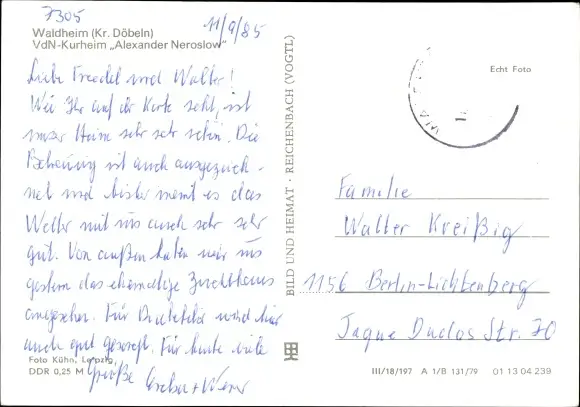 7305
11/9/85
Waldheim (Kr. Döbeln)
VdN-Kurheim „Alexander Neroslow“
Liebe Friedel und Walter!
Wie Ihr auf der Karte seht, ist
unser Heim sehr sehr schön. Die
Betreuung ist auch ausgezeich-
net und bisher meint es das
Wetter mit uns auch sehr sehr
gut. Von außen haben wir uns
gestern das ehemalige Zuchthaus
angesehen. Für wird hier
auch gut gesorgt. Für heute viele
Grüße
Foto Kühn, Leipzig
DDR 0,25 M
BILD UND HEIMAT · REICHENBACH (VOGTL)
Echt Foto
Familie
Walter Kreißig
1156 Berlin-Lichtenberg
Jaque Duclos Str. 70
III/18/197 A 1/B 131/79 01 13 04 239